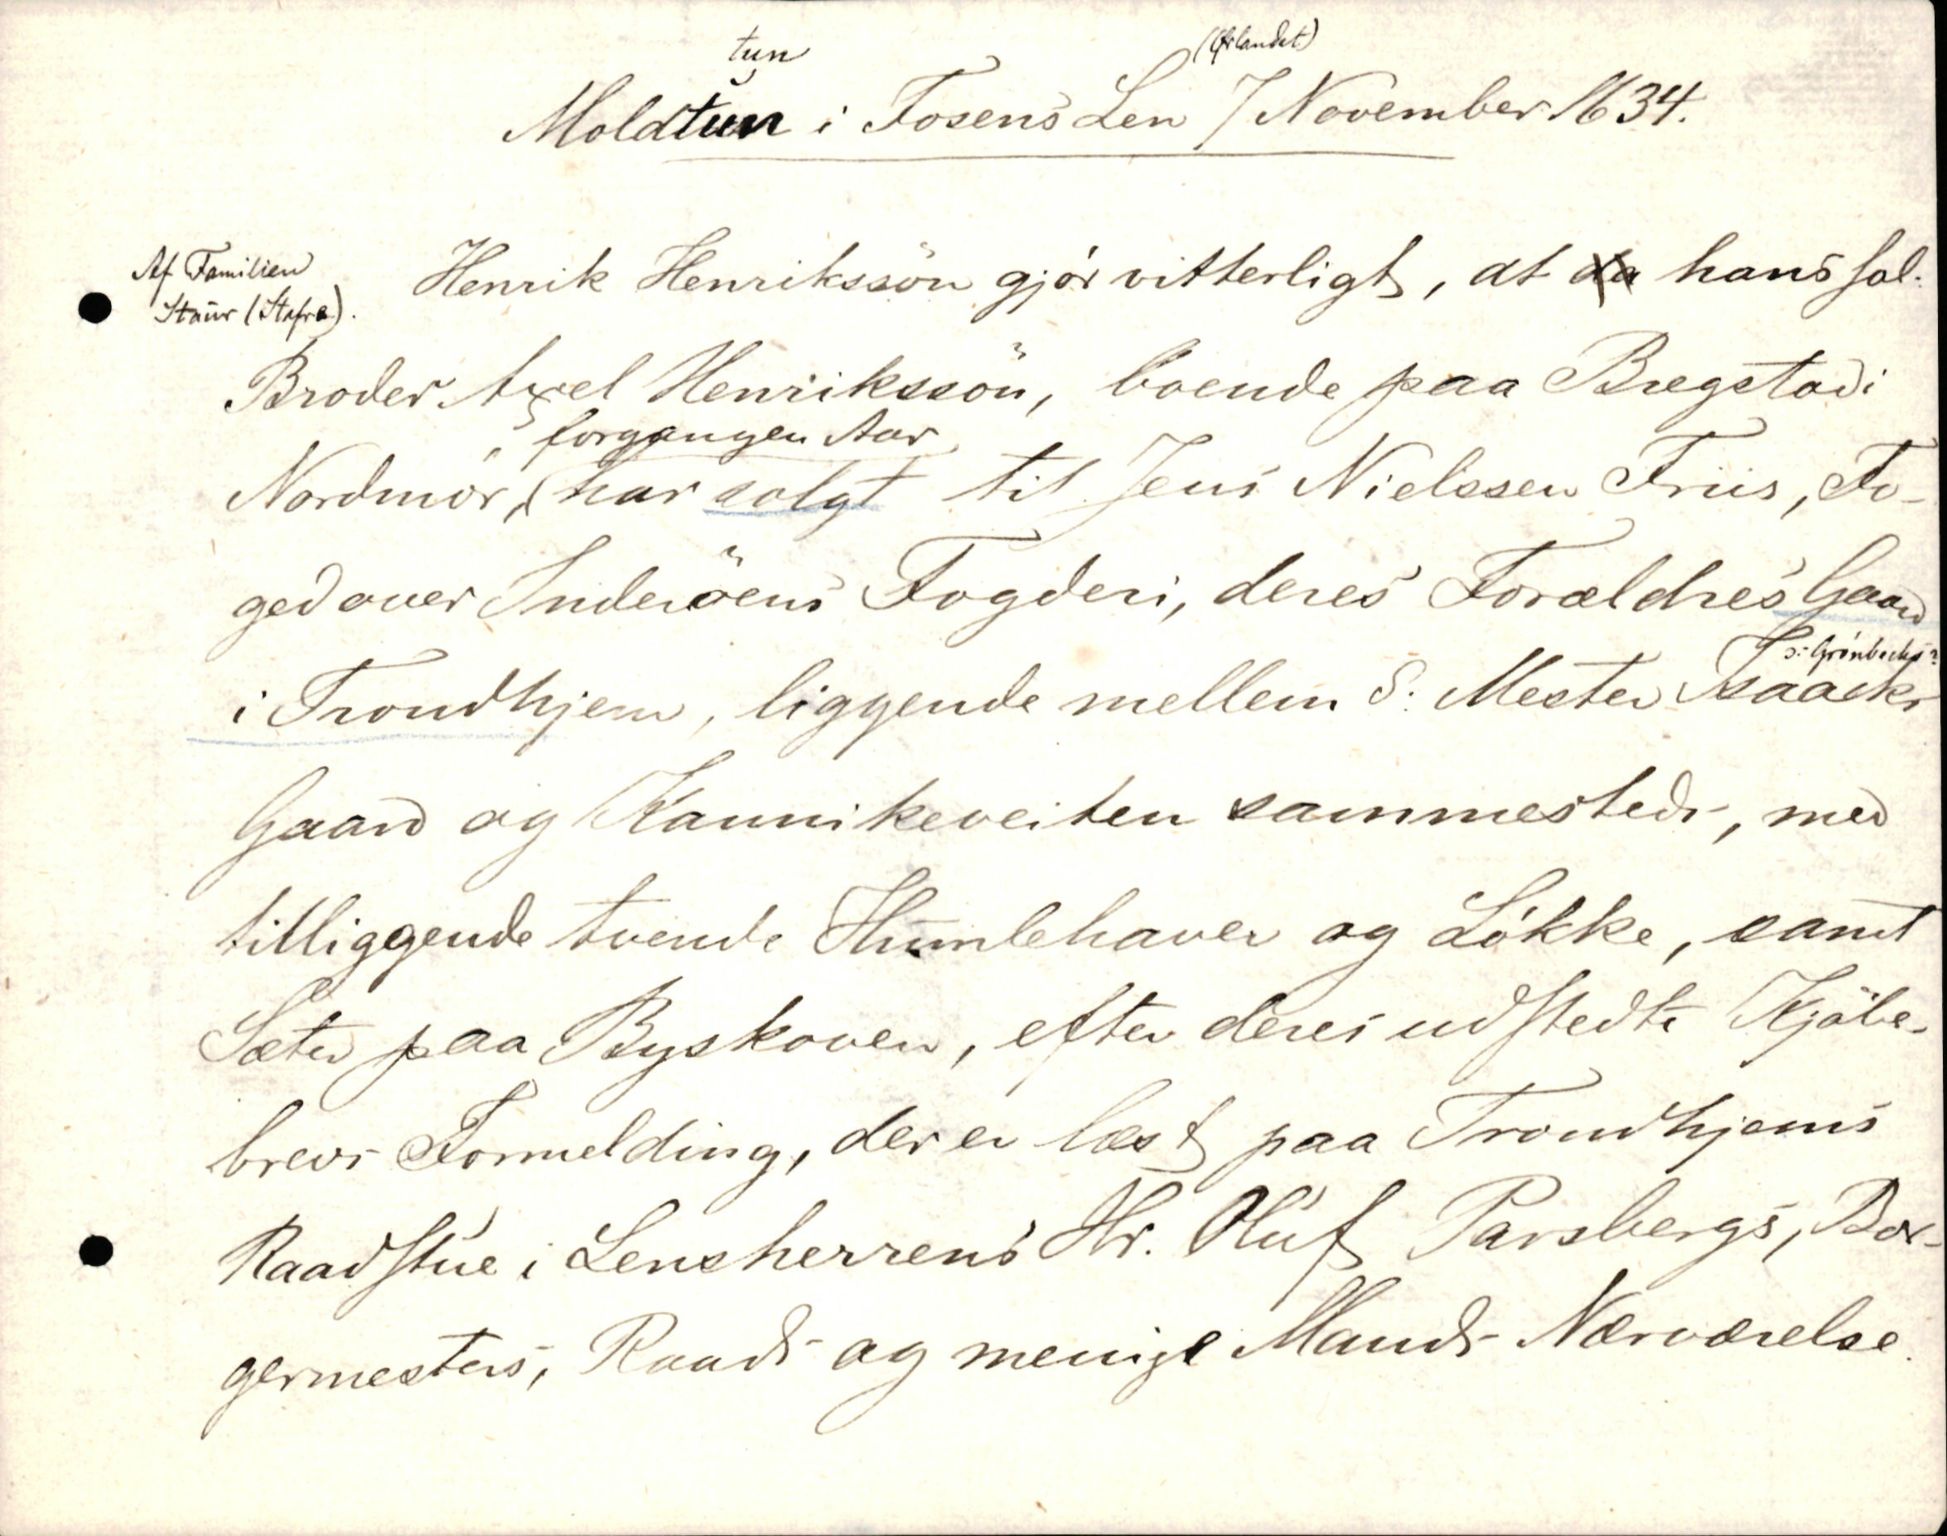 tun (Ørlandet)
Moldtun i Fosens Len 7 November 1634.
Af Familien
Staur (Stafre).
Henrik Henrikssön gjør vitterligt, at da hans sal.
Broder Axel Henrikssön, boende paa Bregstad i
forgangen Aar
Nordmör, har solgt til Jens Nielssen Friis, Fo-
ged over Inderöens Fogderi, deres Forældres Gaard
ɔ: Grønbecks?
i Trondhjem, liggende mellem S. Mester Isaacks
Gaard og Kannikeveiten sammesteds, med
tilliggende tvende Humlehaver og Løkke, samt
Sæter paa Byskoven, efter deres udstedte Kjöbe-
brevs Formelding, der er læst paa Trondhjems
Raadstue i Lensherrens Hr. Oluf Parsbergs, Bor-
germesters, Raads og menige Mands Nærværelse.